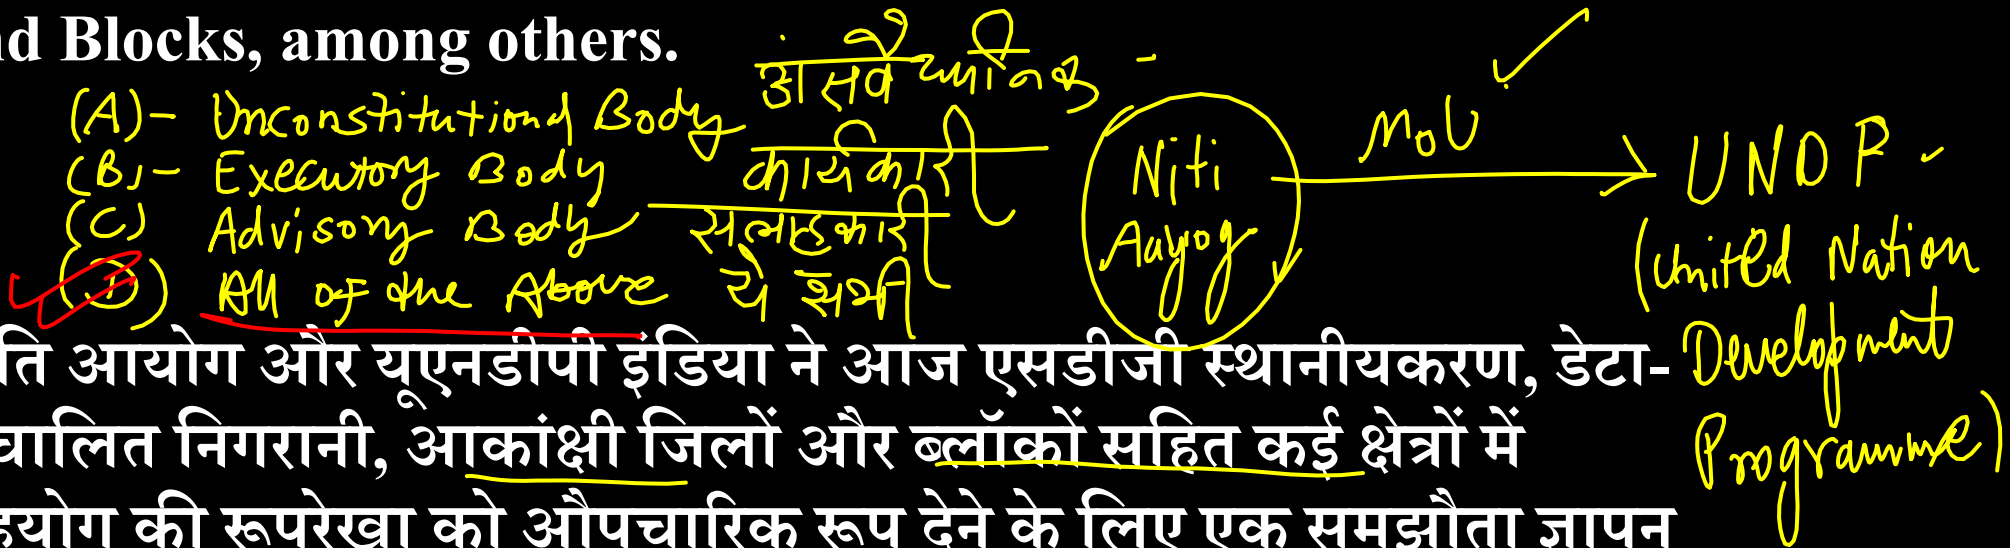 nd Blocks, among others.
(A)- Unconstitutional Body असंवैधानिक -
(B)- Executory Body कार्यकारी
(C) Advisory Body सलाहकारी
(D) All of the Above ये सभी
Niti Aayog
MoU
UNDP
(United Nation
Development
Programme)
ति आयोग और यूएनडीपी इंडिया ने आज एसडीजी स्थानीयकरण, डेटा-
चालित निगरानी, आकांक्षी जिलों और ब्लॉकों सहित कई क्षेत्रों में
हयोग की रूपरेखा को औपचारिक रूप देने के लिए एक समझौता ज्ञापन